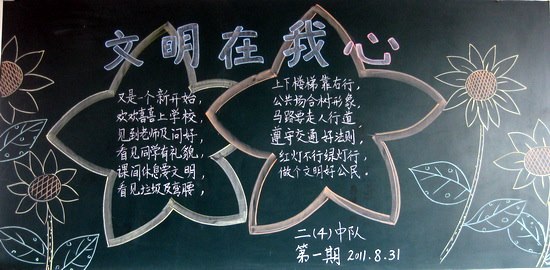 文明在我心
又是一个新开始，
欢欢喜喜上学校，
见到老师及问好，
看见同学有礼貌，
课间休息要文明，
看见垃圾及弯腰，
上下楼梯靠右行，
公共场合树形象，
马路要走人行道，
遵守交通好法则，
红灯不行绿灯行，
做个文明好公民。
二（4）中队
第一期 2011.8.31